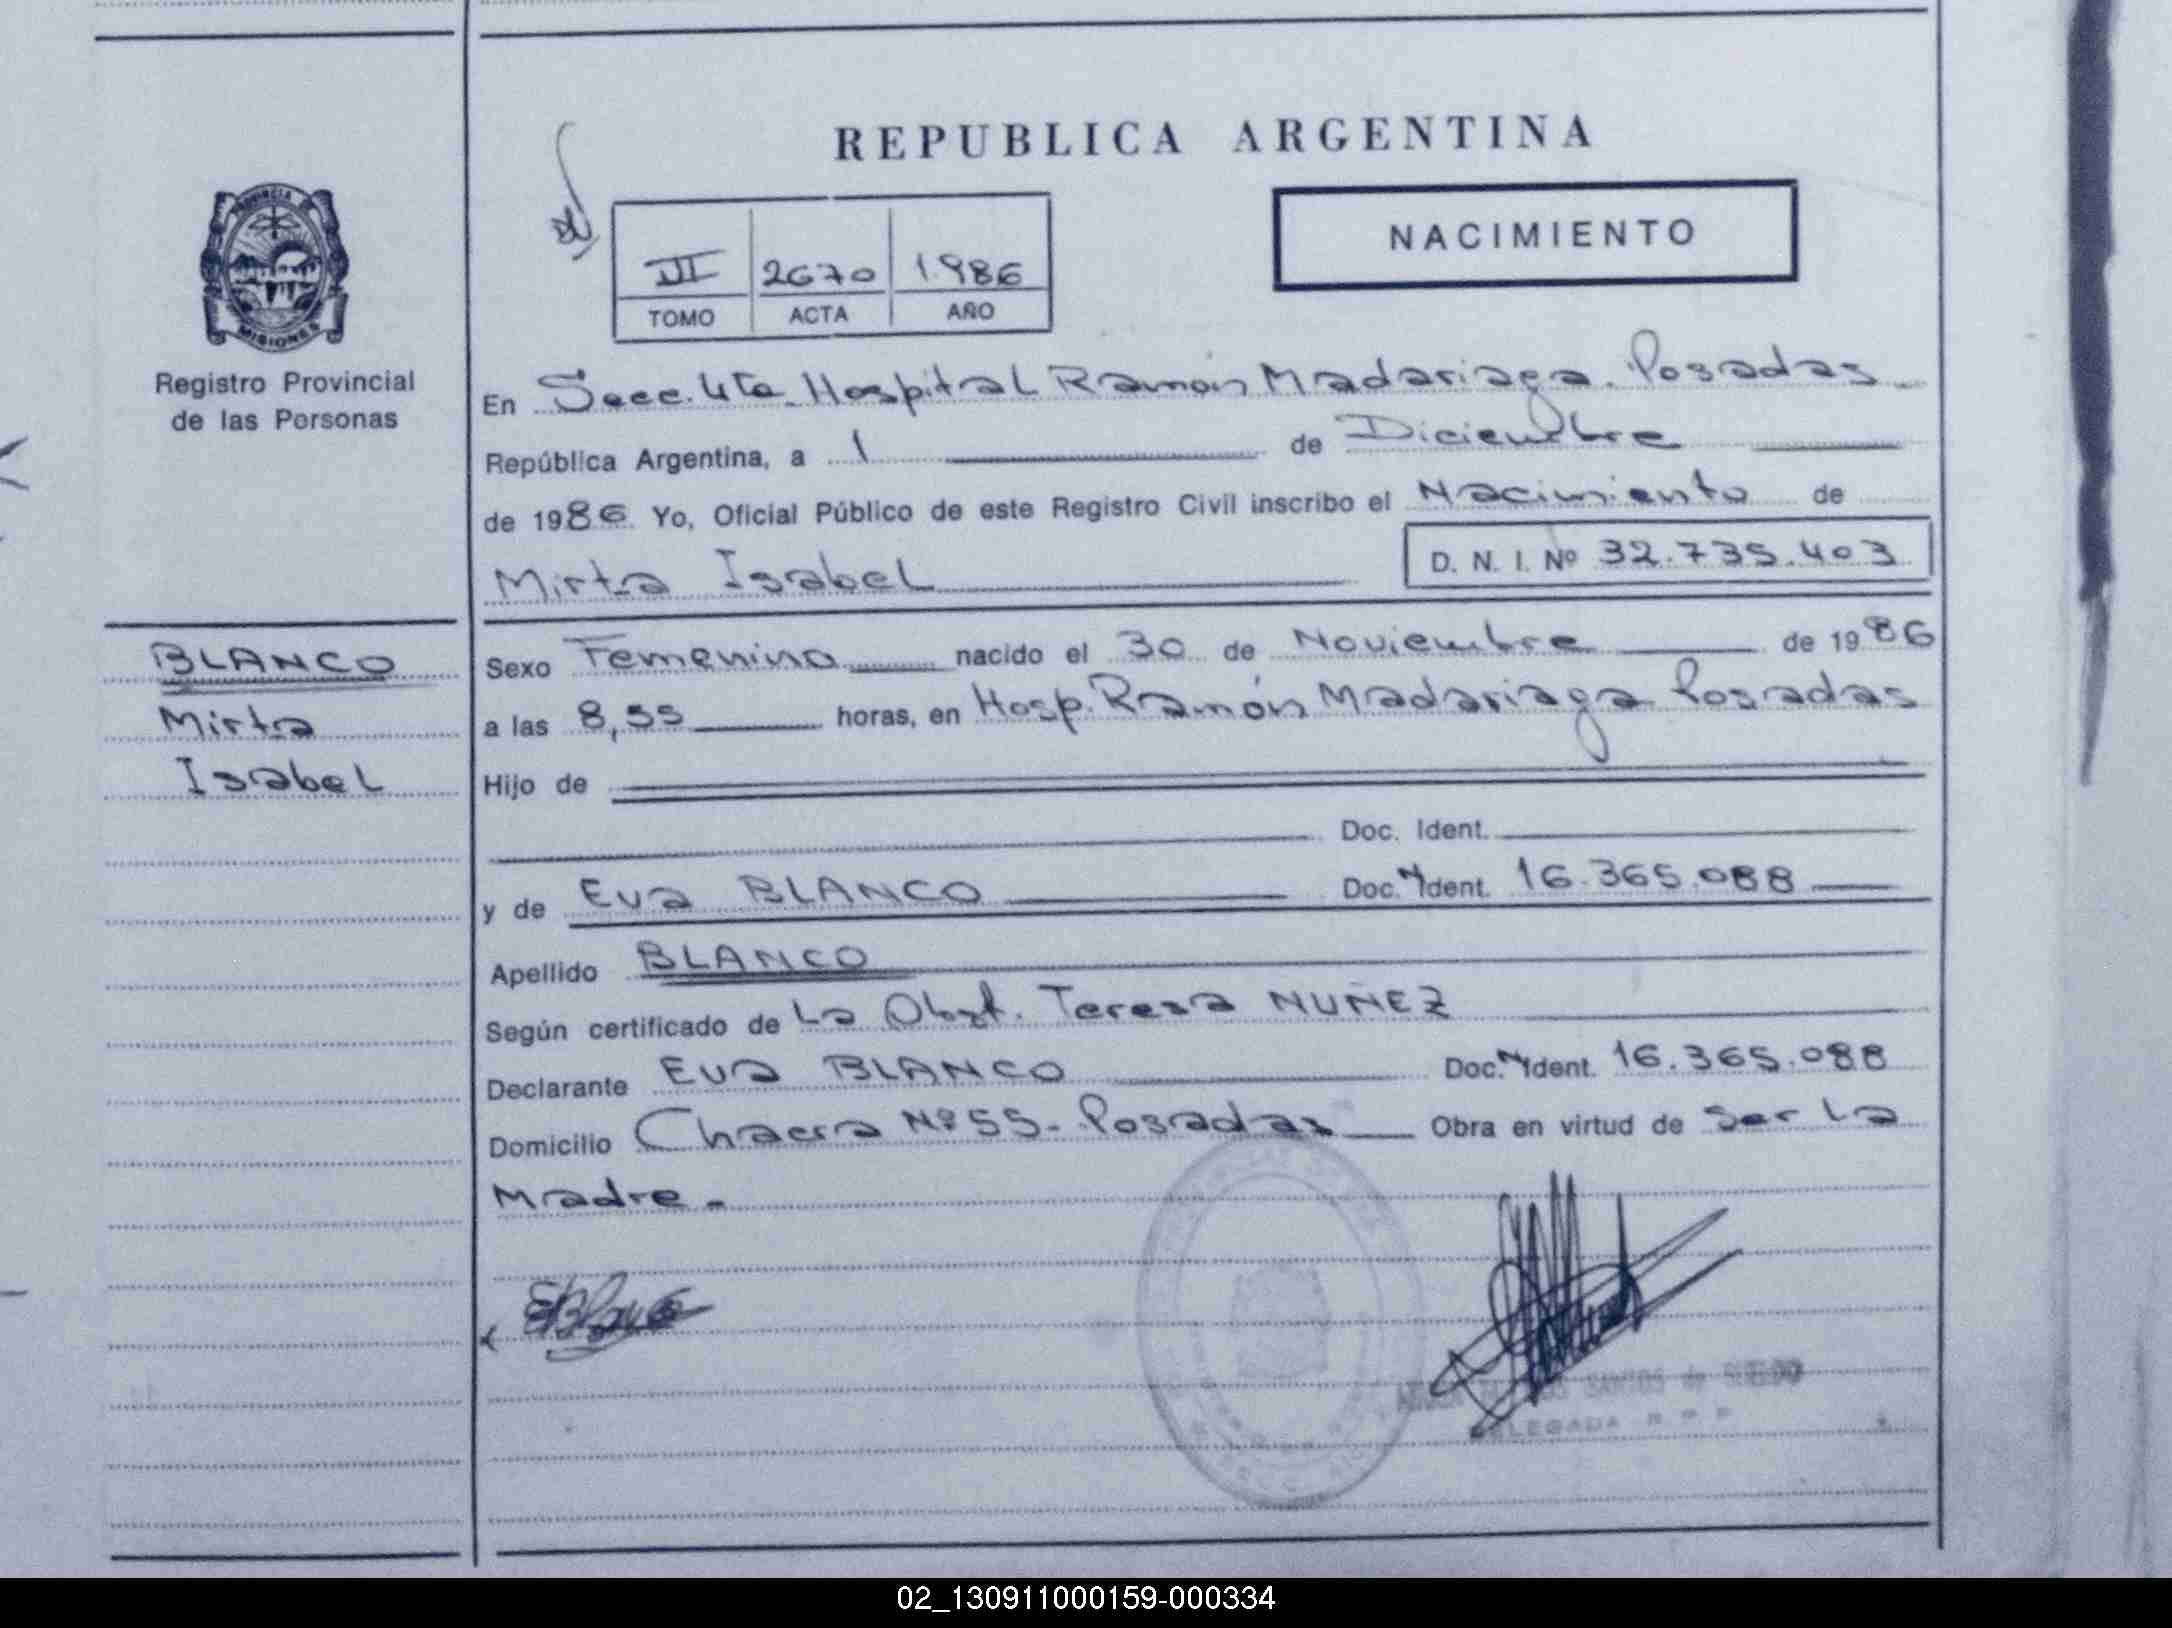 REPUBLICA ARGENTINA
PROVINCIA DE
MISIONES
Registro Provincial
de las Personas
III 2670 1.986
TOMO ACTA AÑO
NACIMIENTO
En Secc. 4ta. Hospital Ramón Madariaga. Posadas
República Argentina, a 1 de Diciembre
de 1986 Yo, Oficial Público de este Registro Civil inscribo el Nacimiento de
Mirta Isabel D. N. I. Nº 32.735.403
BLANCO
Mirta
Isabel
Sexo Femenino nacido el 30 de Noviembre de 1986
a las 8,55 horas, en Hosp. Ramón Madariaga Posadas
Hijo de
Doc. Ident.
y de Eva BLANCO Doc. Ident. 16.365.088
Apellido BLANCO
Según certificado de La Obst. Teresa NUÑEZ
Declarante Eva BLANCO Doc. Ident. 16.365.088
Domicilio Chacra Nº 55- Posadas Obra en virtud de ser La
Madre.-
EBlanco
SANTOS de
DELEGADA R P P
02_130911000159-000334